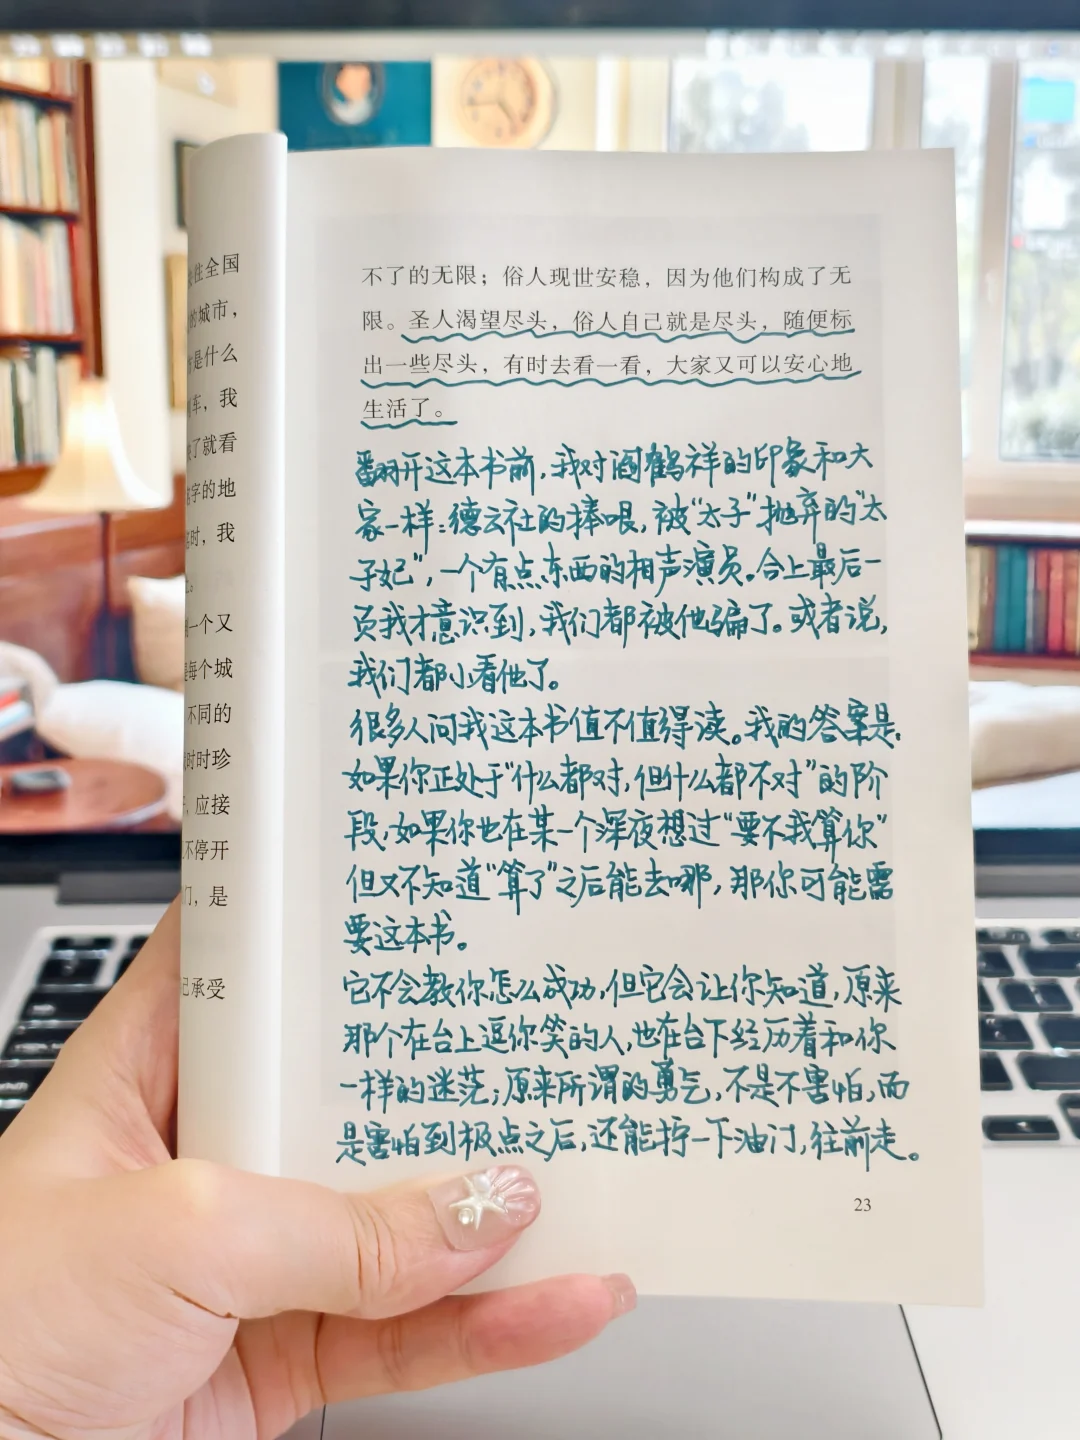 住全国
的城市，
是什么
车，我
了就看
字的地
时，我
一个又
每个城
不同的
时时珍
，应接
不停开
门，是
己承受
不了的无限；俗人现世安稳，因为他们构成了无
限。圣人渴望尽头，俗人自己就是尽头，随便标
出一些尽头，有时去看一看，大家又可以安心地
生活了。
翻开这本书前，我对阎鹤祥的印象和大
家一样：德云社的捧哏，被“太子”抛弃的“太
子妃”，一个有点东西的相声演员。合上最后一
页我才意识到，我们都被他骗了。或者说，
我们都小看他了。
很多人问我这本书值不值得读。我的答案是，
如果你正处于“什么都对，但什么都不对”的阶
段，如果你也在某一个深夜想过“要不我算你”
但又不知道“算了”之后能去哪，那你可能需
要这本书。
它不会教你怎么成功，但它会让你知道，原来
那个在台上逗你笑的人，也在台下经历着和你
一样的迷茫；原来所谓的勇气，不是不害怕，而
是害怕到极点之后，还能拧一下油门，往前走。
23